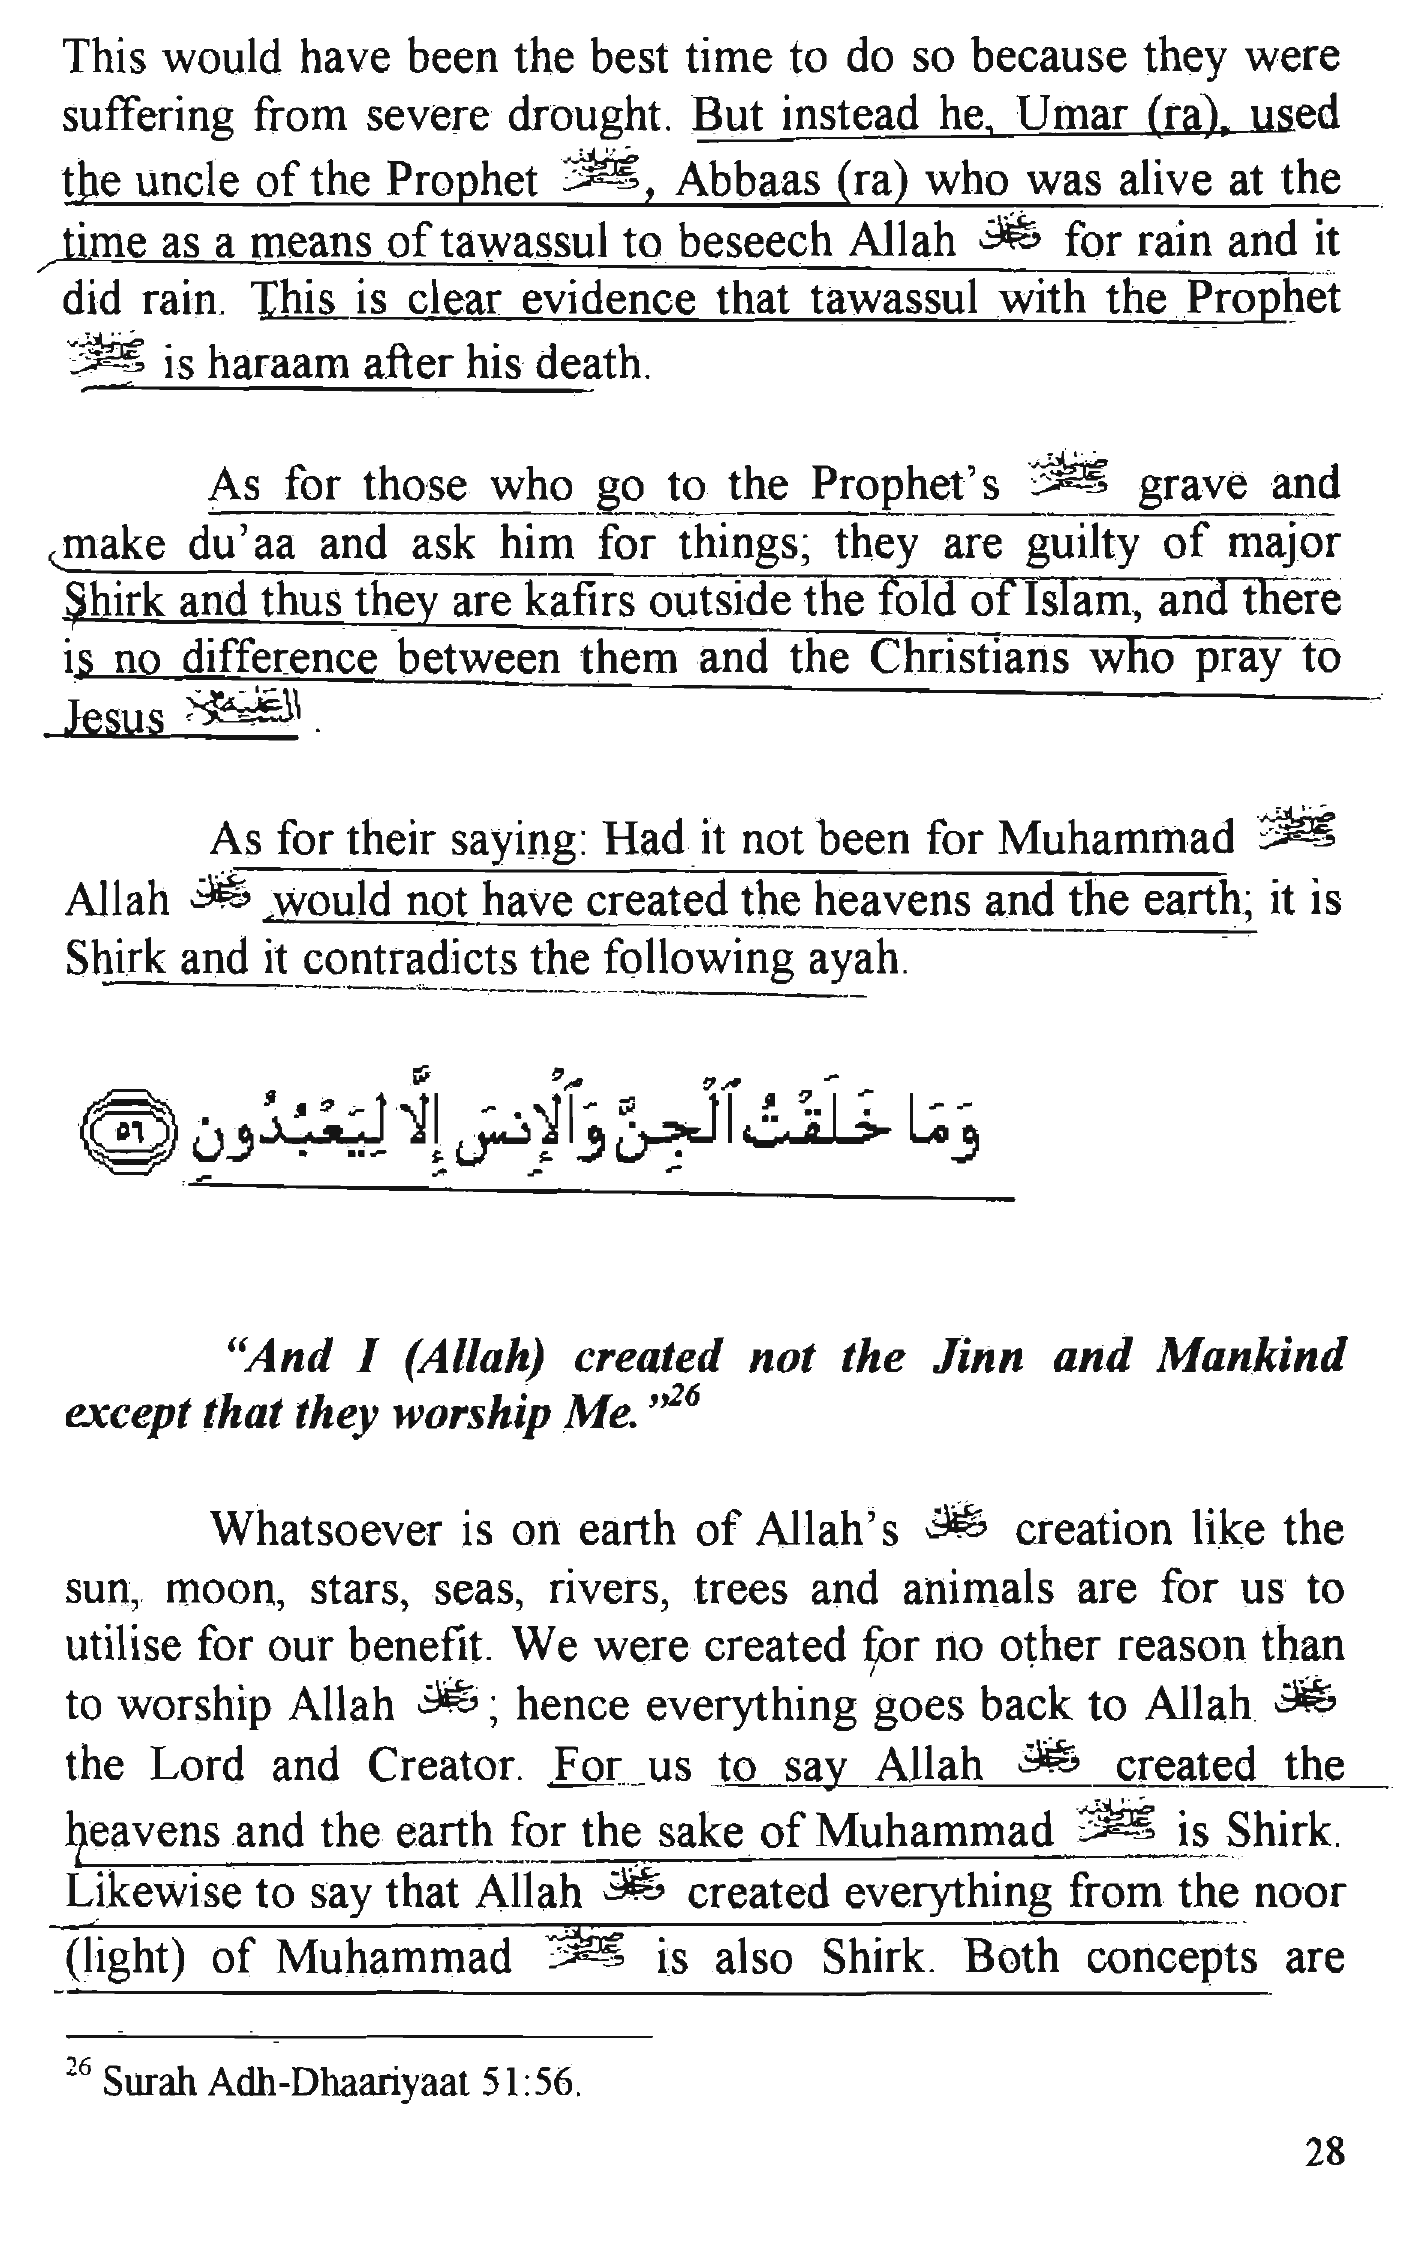 This would have been the best time to do so because they were
suffering from severe drought. But instead he, Umar (ra), used
the uncle of the Prophet ﷺ, Abbaas (ra) who was alive at the
time as a means of tawassul to beseech Allah ﷻ for rain and it
did rain. This is clear evidence that tawassul with the Prophet
ﷺ is haraam after his death.
As for those who go to the Prophet's ﷺ grave and
make du'aa and ask him for things; they are guilty of major
Shirk and thus they are kafirs outside the fold of Islam, and there
is no difference between them and the Christians who pray to
Jesus عليه السلام.
As for their saying: Had it not been for Muhammad ﷺ
Allah ﷻ would not have created the heavens and the earth; it is
Shirk and it contradicts the following ayah.
وَمَا خَلَقْتُ ٱلْجِنَّ وَٱلْإِنسَ إِلَّا لِيَعْبُدُونِ ٥٦
“And I (Allah) created not the Jinn and Mankind
except that they worship Me.”26
Whatsoever is on earth of Allah's ﷻ creation like the
sun, moon, stars, seas, rivers, trees and animals are for us to
utilise for our benefit. We were created for no other reason than
to worship Allah ﷻ; hence everything goes back to Allah ﷻ
the Lord and Creator. For us to say Allah ﷻ created the
heavens and the earth for the sake of Muhammad ﷺ is Shirk.
Likewise to say that Allah ﷻ created everything from the noor
(light) of Muhammad ﷺ is also Shirk. Both concepts are
26 Surah Adh-Dhaariyaat 51:56.
28